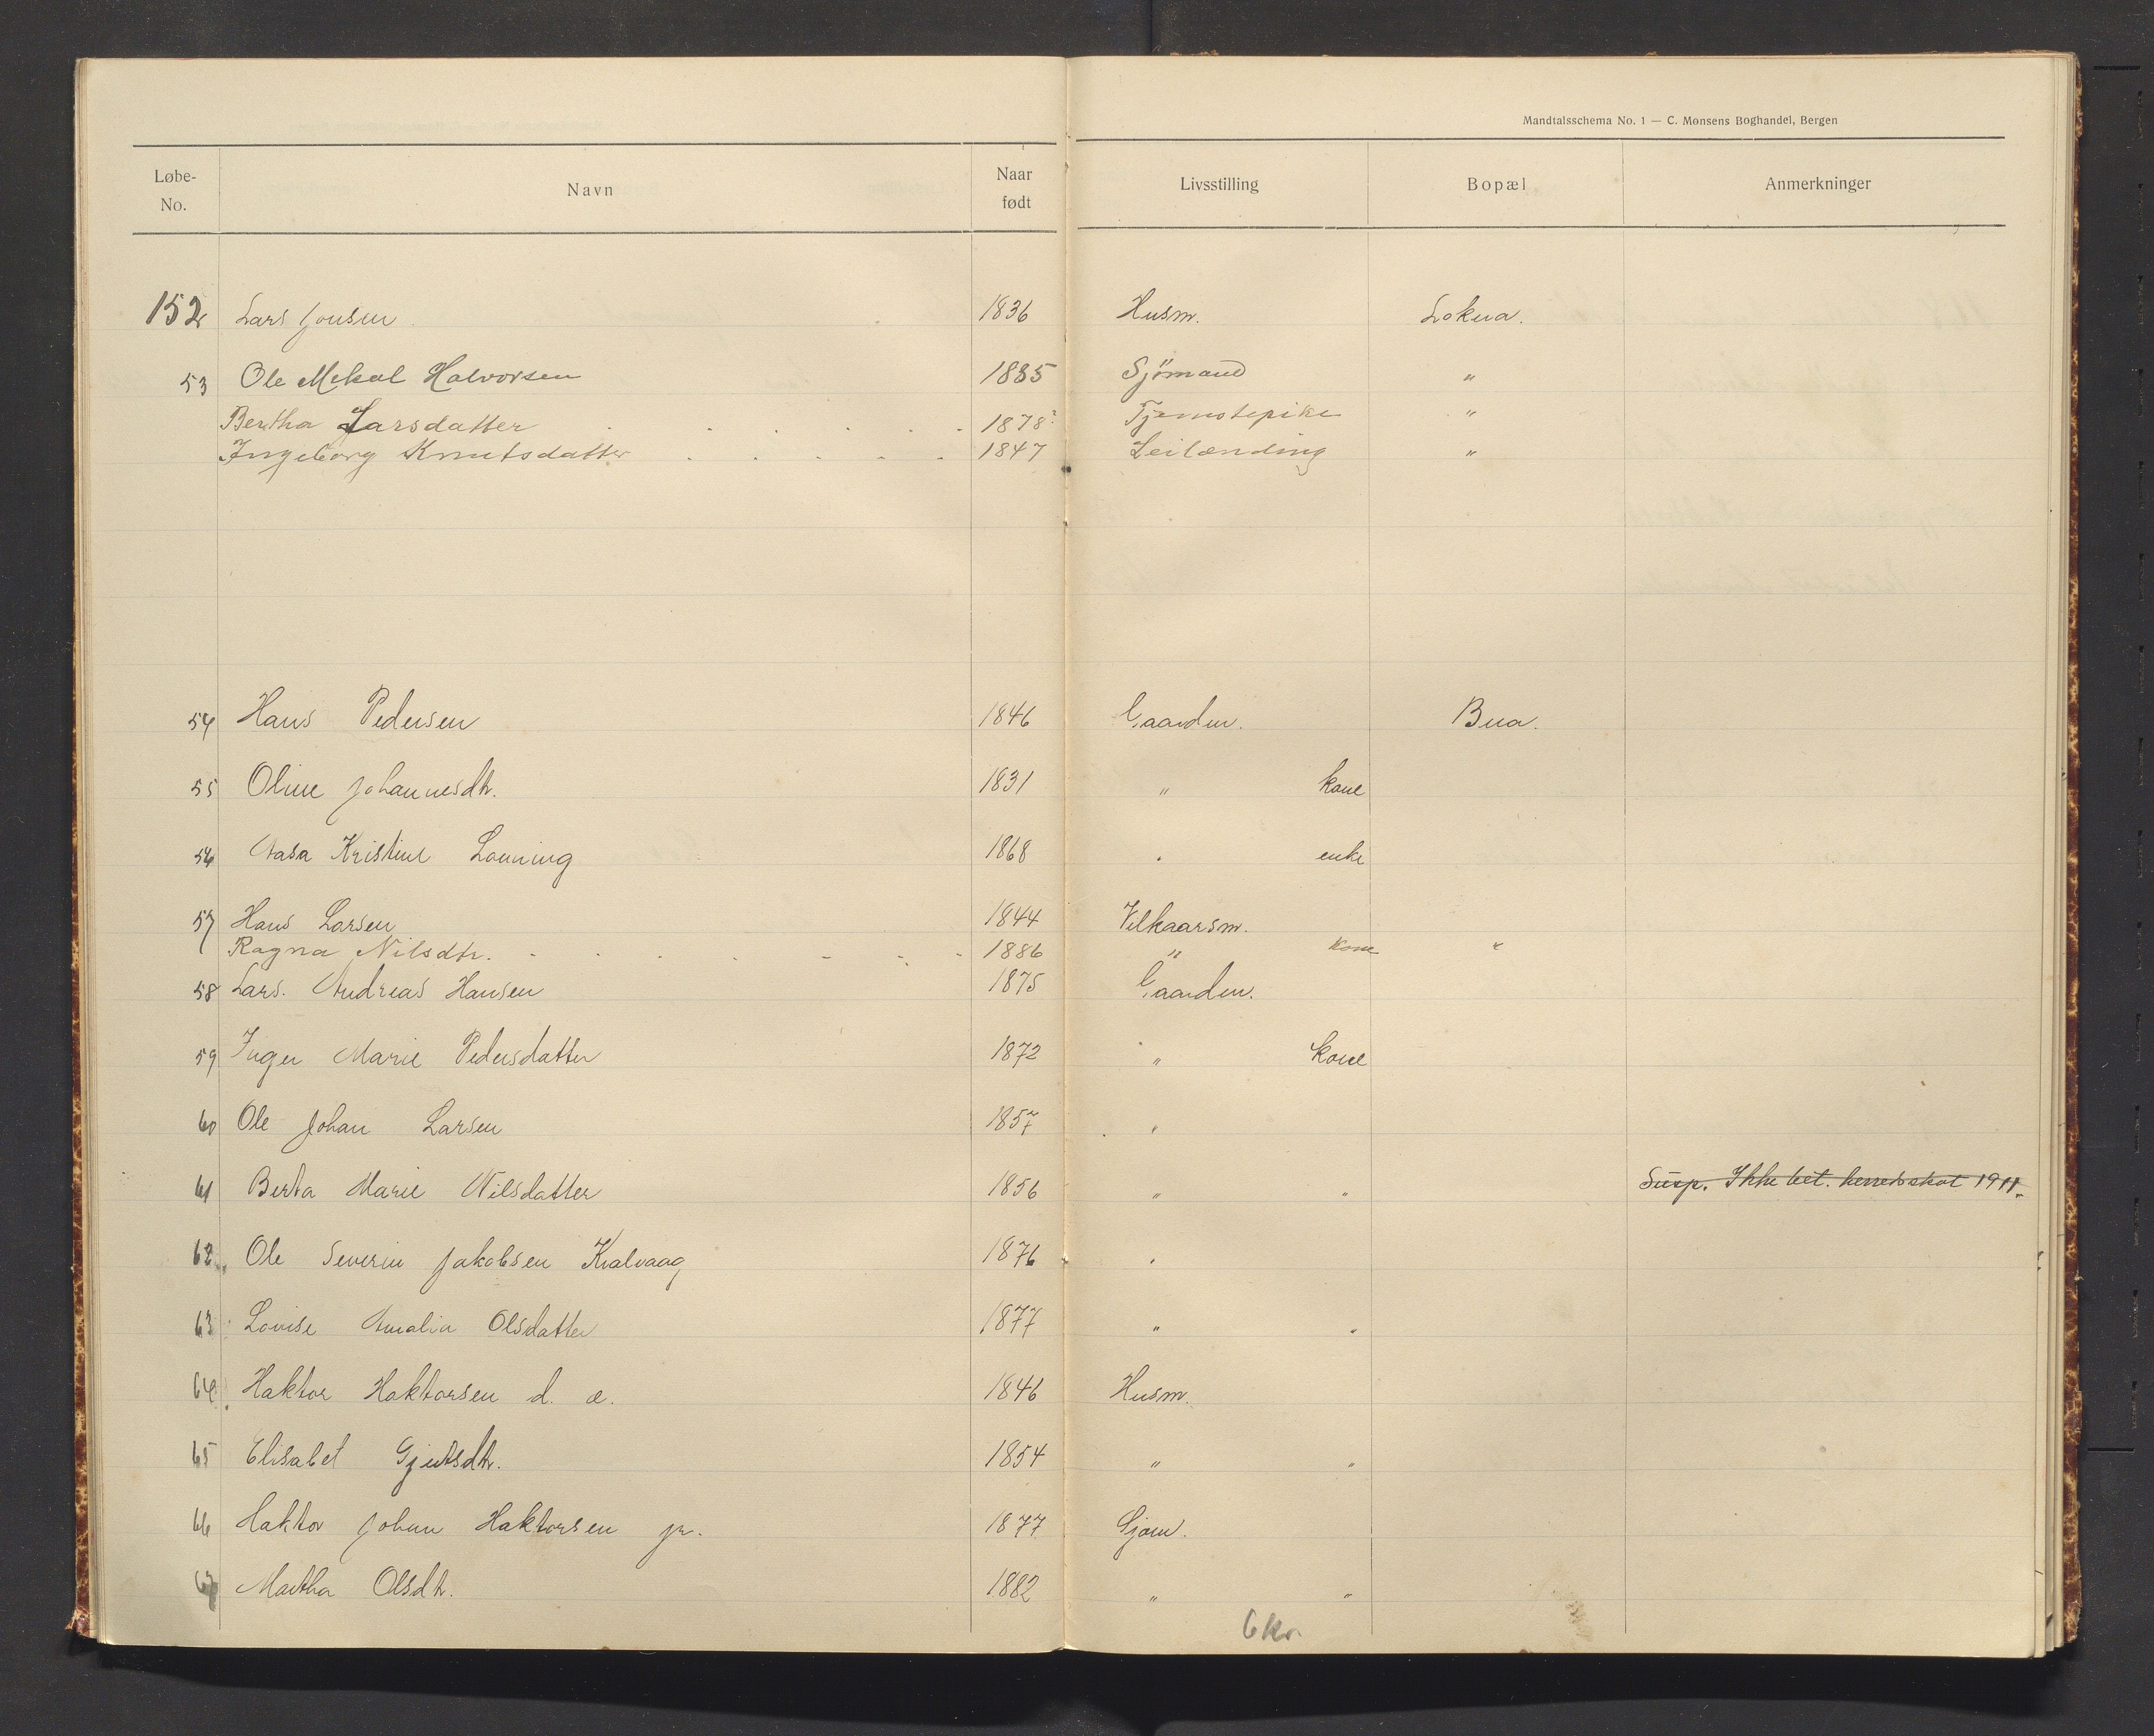 Mandtalsschema No. 1 — C. Monsens Boghandel, Bergen
Løbe-No. Navn Naar født Livsstilling Bopæl Anmerkninger
152 Lars Jonsen 1836 Husm. Lokna.
53 Ole Mekal Halvorsen 1885 Sjømand "
Bertha Larsdatter 1878 Tjenestepike "
Ingeborg Knutsdatter 1847 Leilænding "
54 Hans Pedersen 1846 Gaardm. Bua.
55 Oline Johannesdtr. 1831 " kone
56 Aasa Kristine Lønning 1868 " enke
57 Hans Larsen 1844 Vilkaarsm.
Ragna Nilsdtr. 1886 " kone "
58 Lars. Andreas Hansen 1875 Gaardm.
59 Inger Marie Pedersdatter 1872 " kone
60 Ole Johan Larsen 1857 "
61 Berta Marie Nilsdatter 1856 " " Susp. Ikke bet. herredsskat 1911.
62 Ole Severin Jakobsen Kvalvaag 1876 "
63 Lovise Amalia Olsdatter 1877 " "
64 Haktor Haktorsen d. æ. 1846 Husm.
65 Elisabet Gjertsdtr. 1854 " "
66 Haktor Johan Haktorsen jr. 1877 Sjøm.
67 Martha Olsdtr. 1882 " "
6 kr.